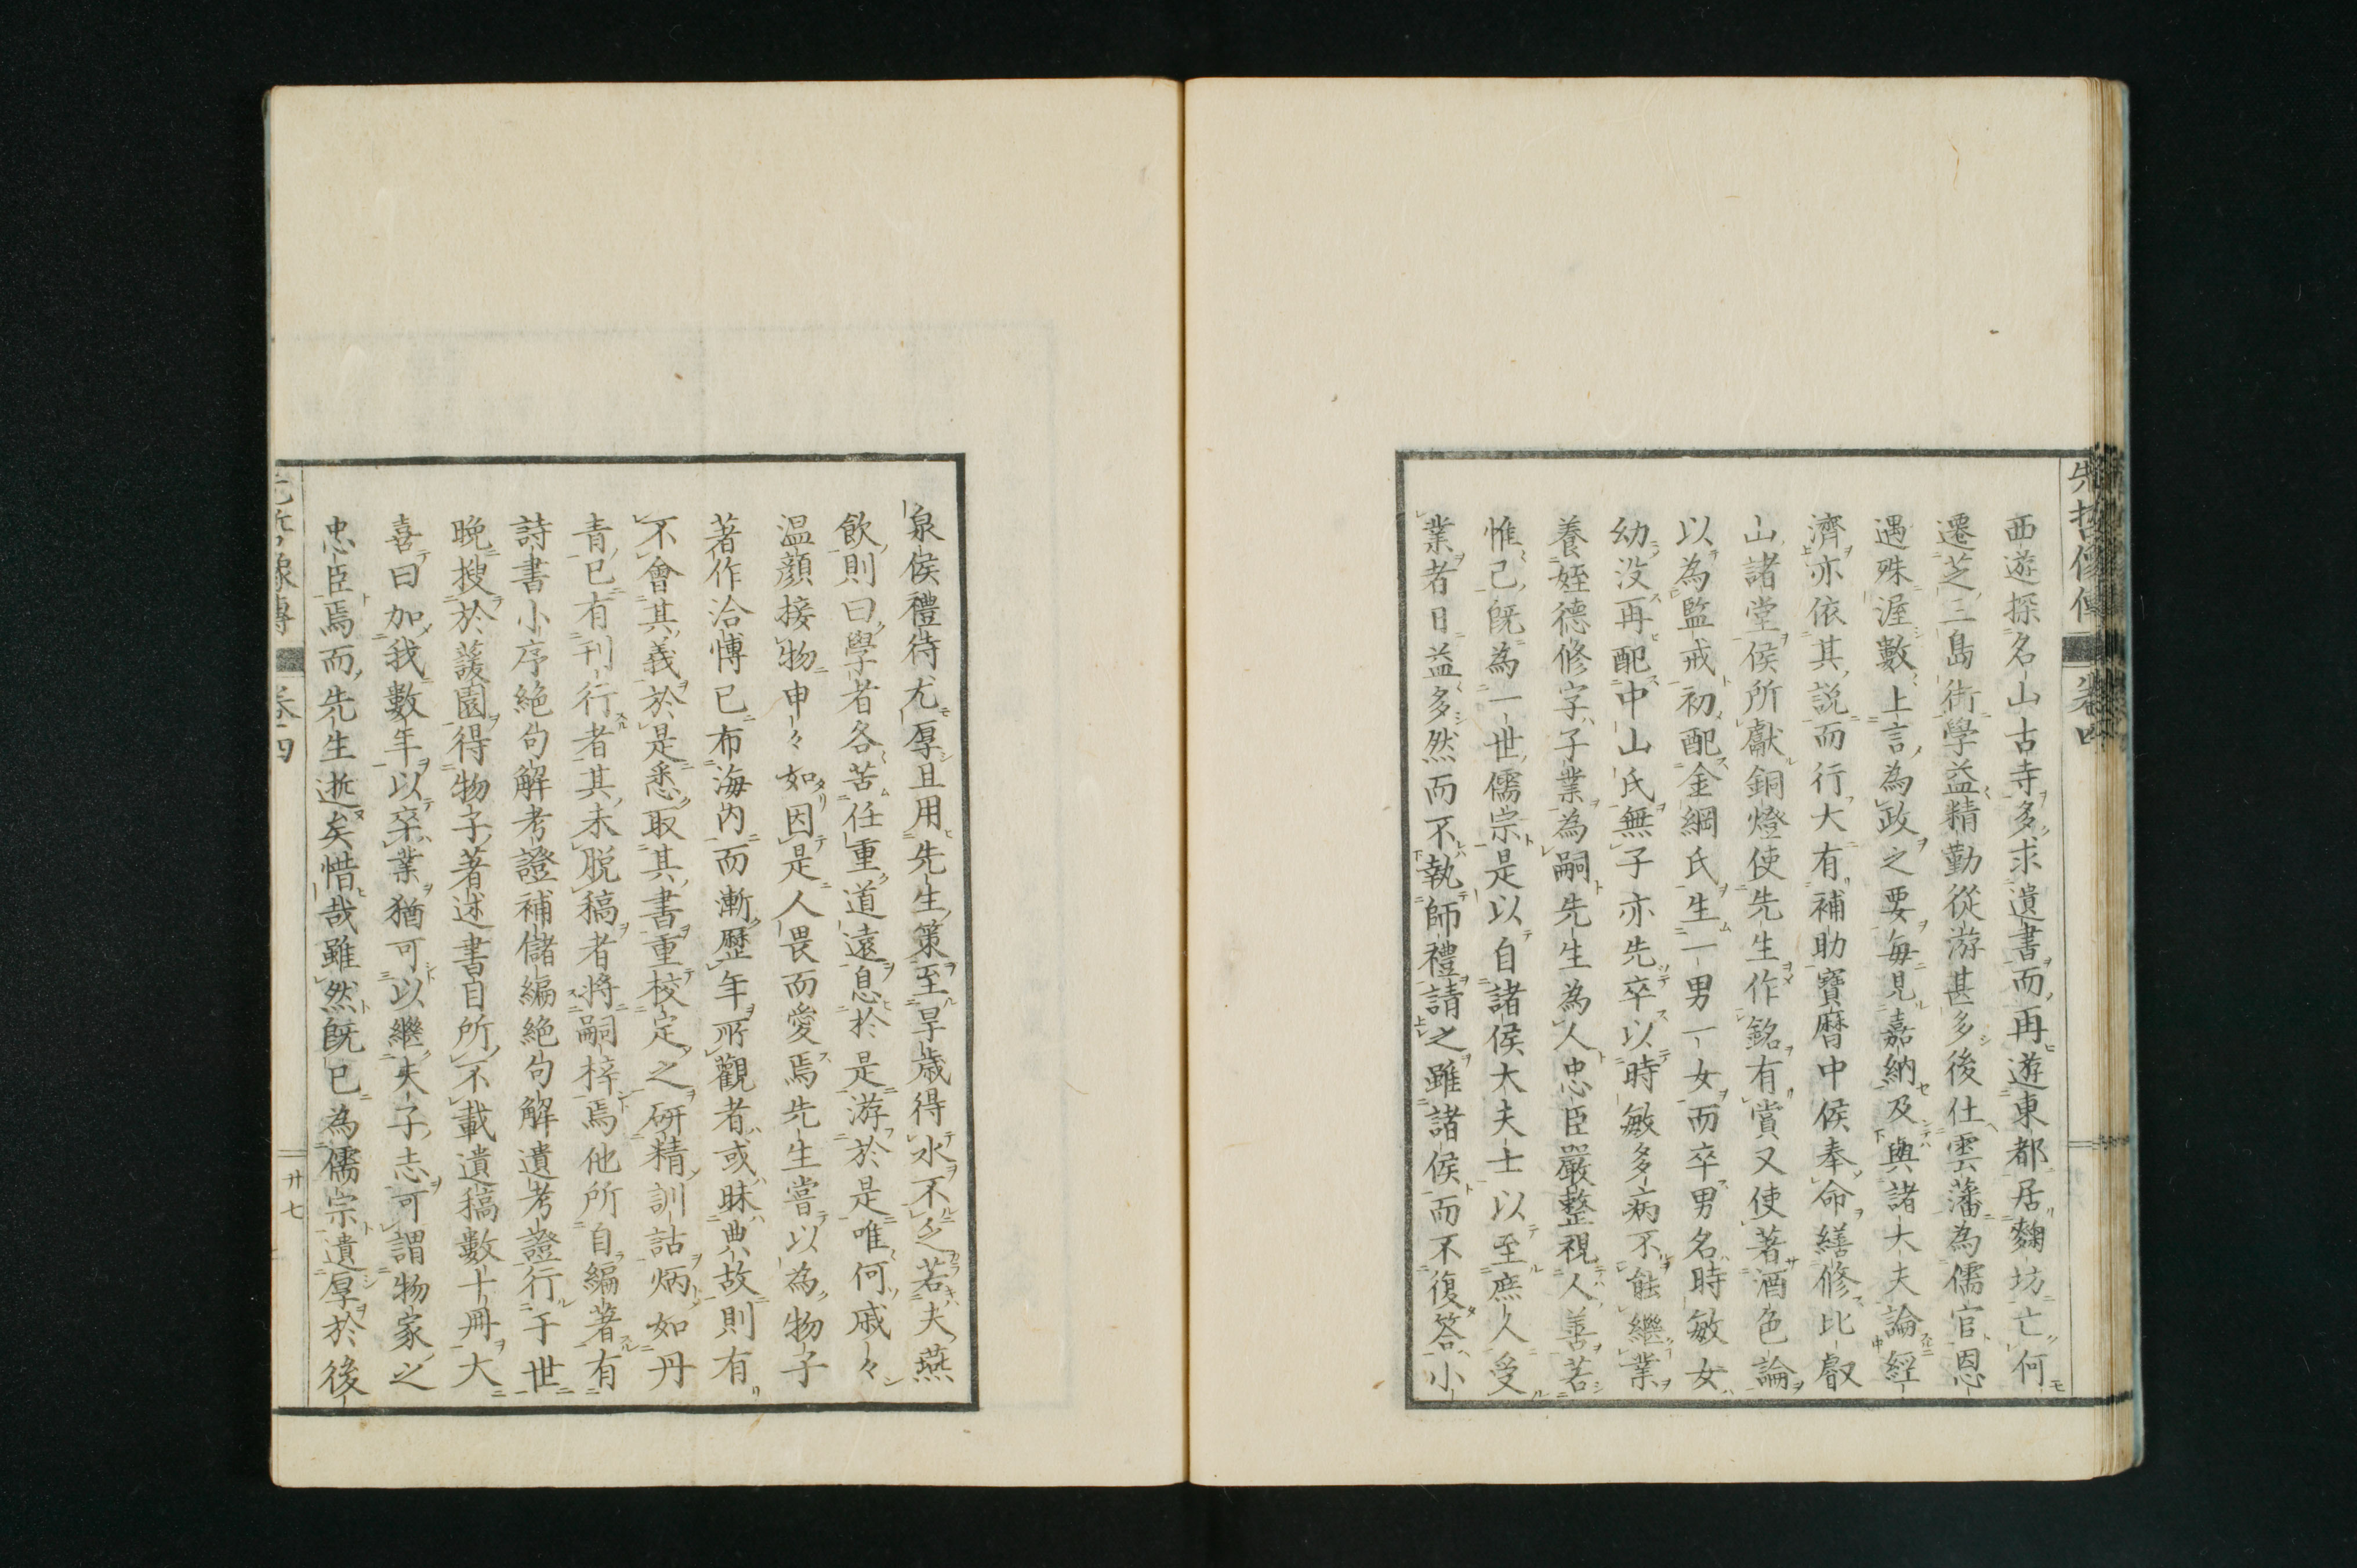 先哲像傳 卷四
西遊探名山古寺多求遺書而再遊東都居麹坊亡何
遷芝三島街學益精勤從游甚多後仕雲藩為儒官恩
遇殊渥數上言為政之要每見嘉納及與諸大夫論經
濟亦依其説而行大有補助寶曆中侯奉命繕修比叡
山諸堂侯所獻銅燈使先生作銘有賞又使著酒色論
以為監戒初配金綱氏生一男一女而卒男名時敏女
幼没再配中山氏無子亦先卒以時敏多病不能繼業
養姪德修字子業為嗣先生為人忠臣嚴整視人善若
惟己既為一世儒宗是以自諸侯大夫士以至庶人受
業者日益多然而不執師禮請之雖諸侯而不復答小
泉侯禮待尤厚且用先生策至旱歳得水不乏若夫燕
飲則曰學者各苦任重道遠息於是游於是唯何戚々
温顔接物申々如因是人畏而愛焉先生嘗以為物子
著作洽博已布海内而漸歷年所觀者或昧典故則有
不會其義於是悉取其書重校定之研精訓詁炳如丹
青已有刊行者其未脱稿者將嗣梓焉他所自編著有
詩書小序絶句解考證補儲編絶句解遺考證行于世
晩搜於蘐園得物子著述書目所不載遺稿數十冊大
喜曰加我數年以卒業猶可以繼夫子志可謂物家之
忠臣焉而先生逝矣惜哉雖然既已為儒宗遺厚於後
先哲像傳 卷四 廾七